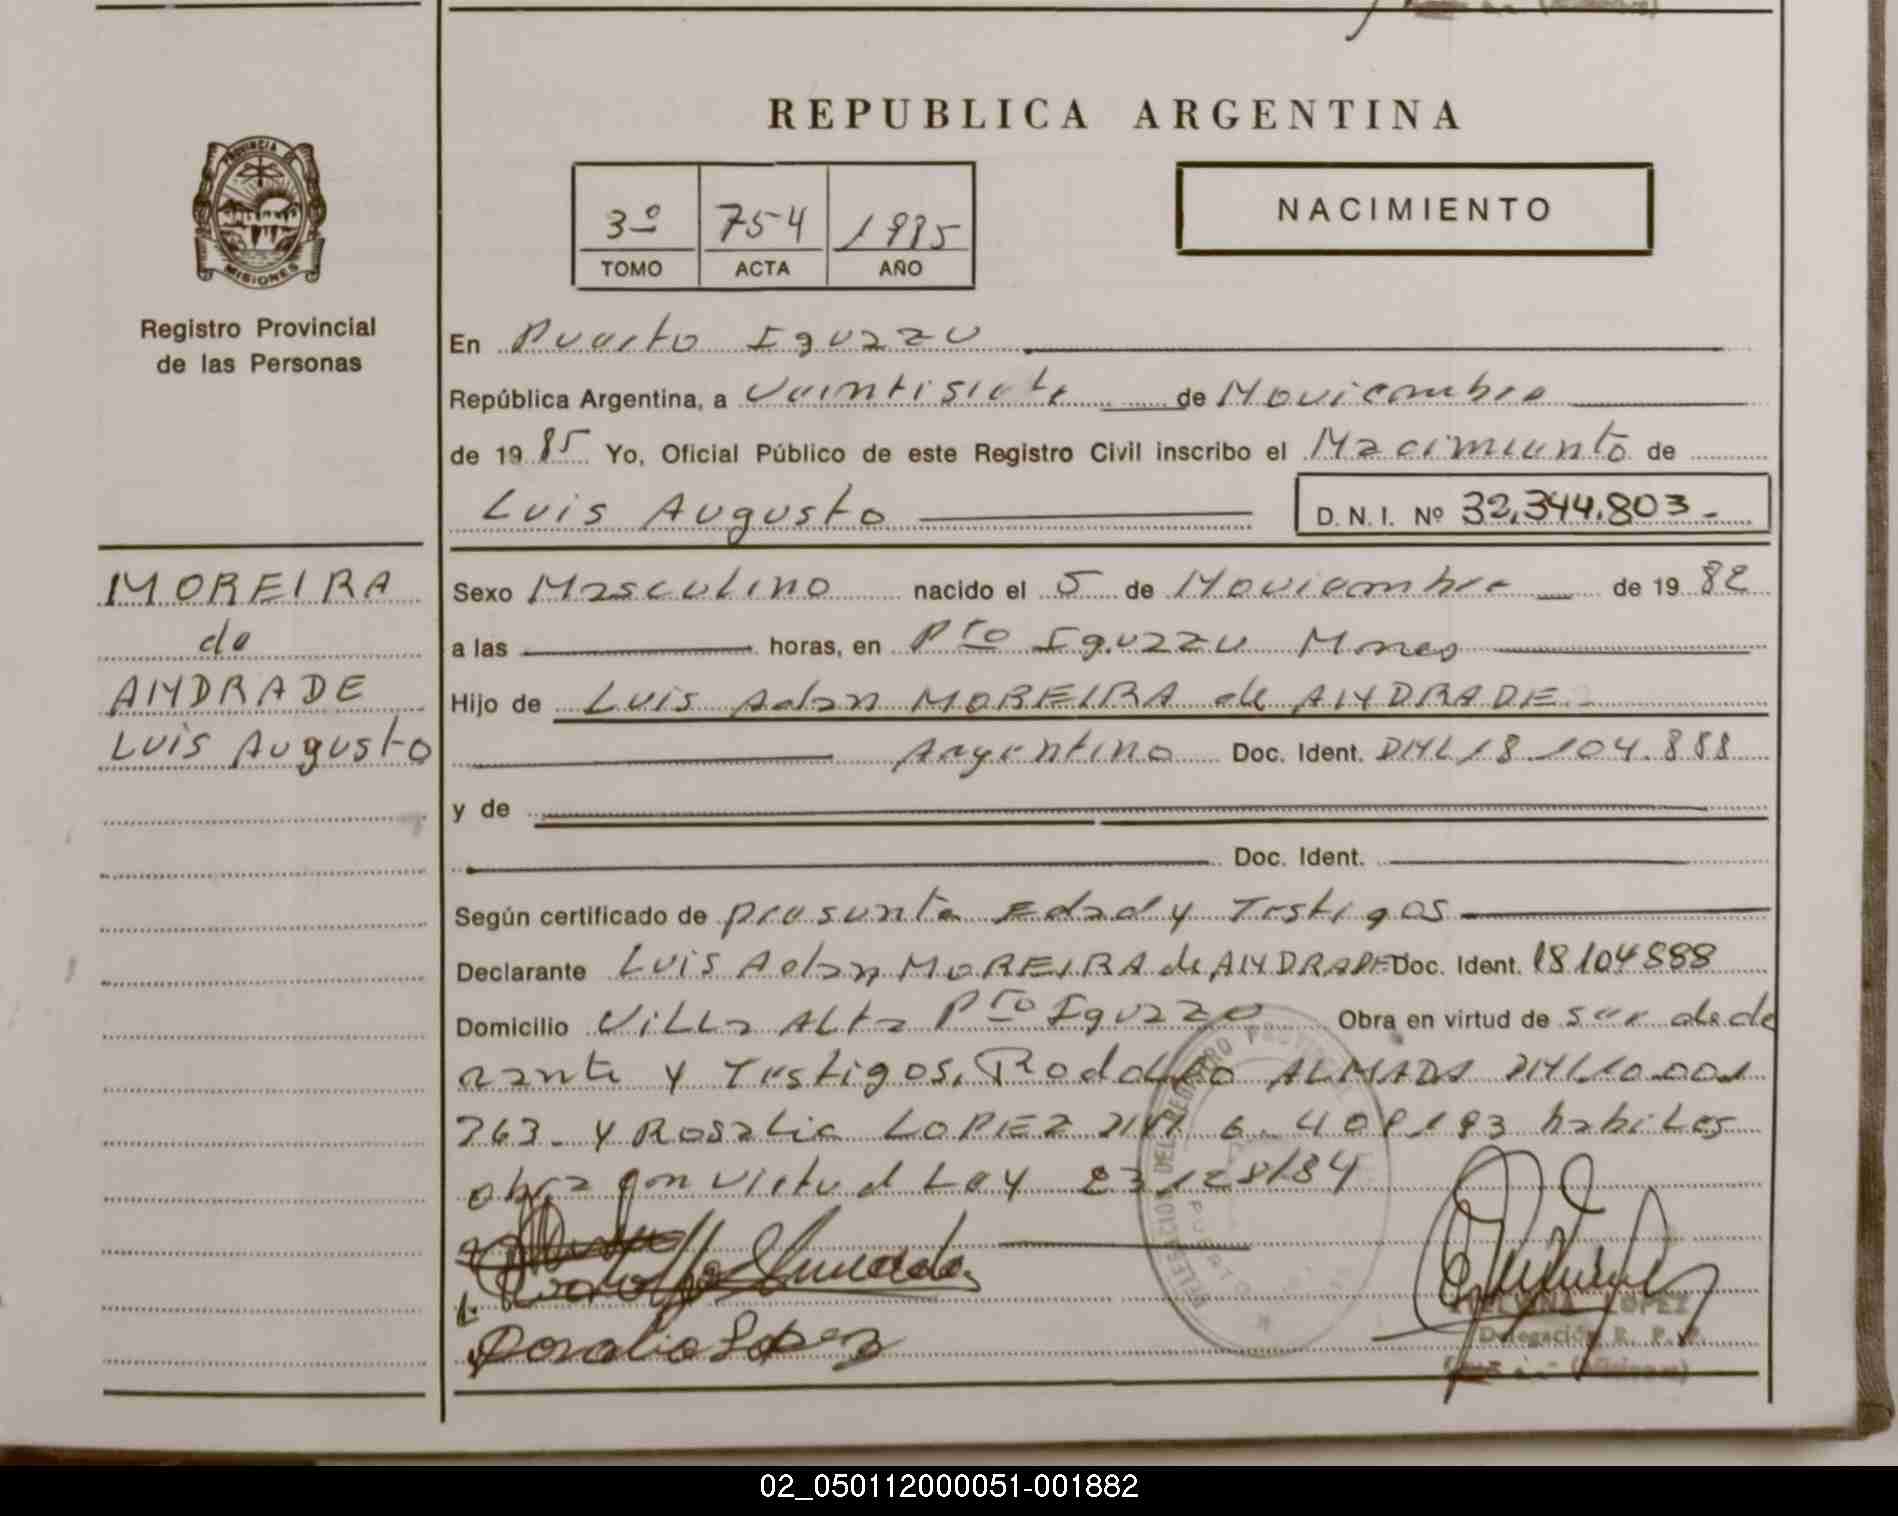 REPUBLICA ARGENTINA
PROVINCIA DE
MISIONES
3º 754 1985
TOMO ACTA AÑO
NACIMIENTO
Registro Provincial
de las Personas
En Puerto Iguazu
República Argentina, a Veintisiete de Noviembre
de 1985 Yo, Oficial Público de este Registro Civil inscribo el Nacimiento de
Luis Augusto D. N. I. Nº 32.344.803.-
MOREIRA
de
ANDRADE
Luis Augusto
Sexo Masculino nacido el 5 de Noviembre de 1982
a las horas, en Pto Iguazu Mnes
Hijo de Luis Adan MOREIRA de ANDRADE
Argentino Doc. Ident. DNI 18.104.888
y de
Doc. Ident.
Según certificado de presunta Edad y Testigos
Declarante Luis Adan MOREIRA de ANDRADE Doc. Ident. 18104888
Domicilio Villa Alta Pto Iguazu Obra en virtud de ser decla
rante y Testigos, Rodolfo ALMADA DNI 10.001
763. y Rosalia LOPEZ DNI 6.408.193 habiles
obra en virtud Ley 23.128/84
Rodolfo Almada
Rosalia Lopez
DELEGACION DEL REGISTRO PROVINCIAL
PUERTO
LOPEZ
Delegación R. P. P.
(Misiones)
02_050112000051-001882